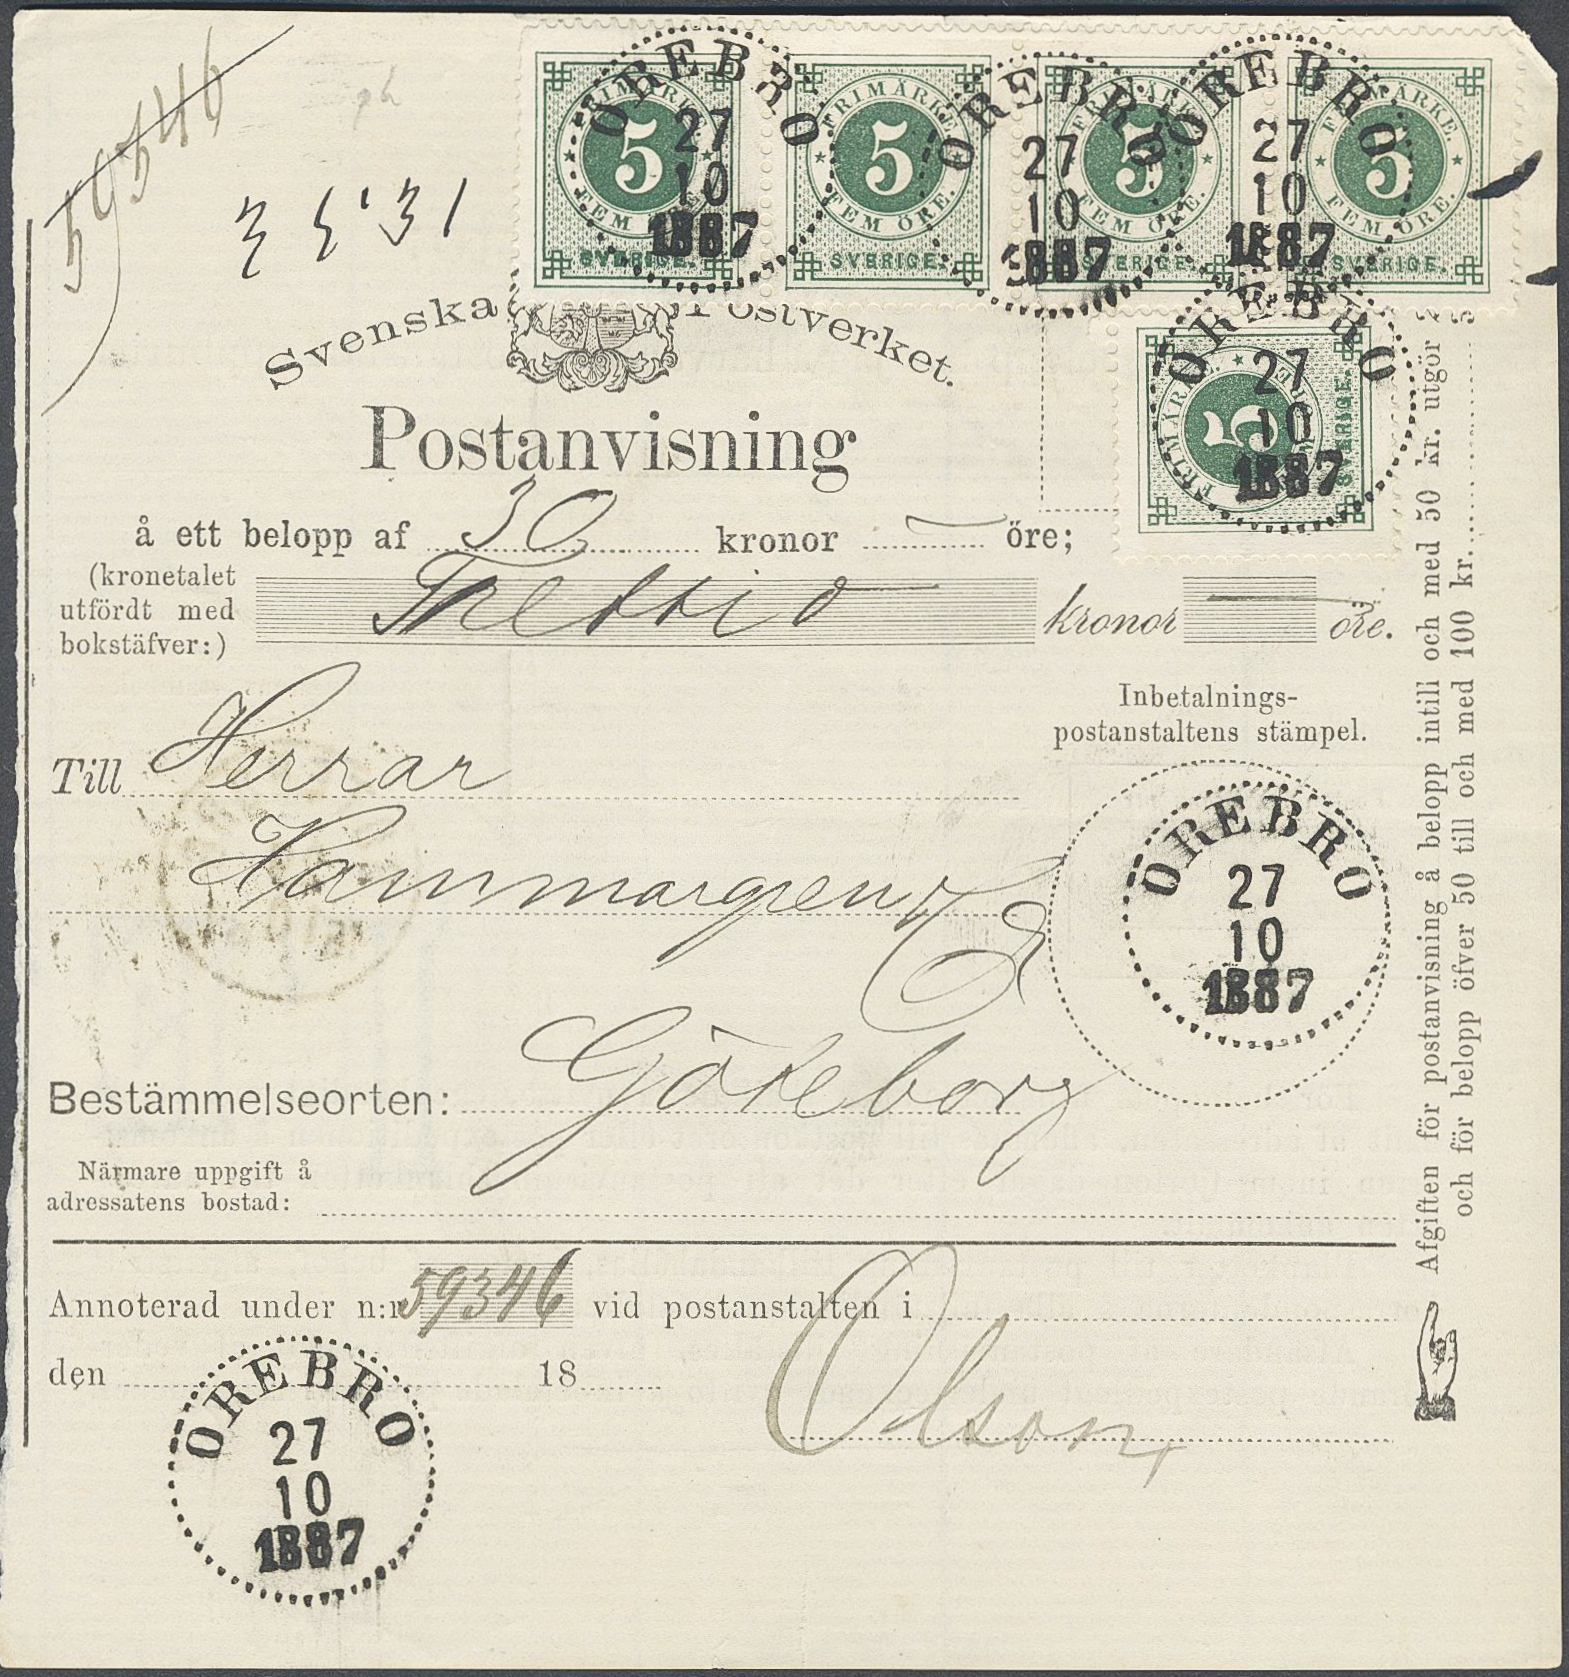 59346
FRIMÄRKE. 5 FEM ÖRE. SVERIGE.
FRIMÄRKE. 5 FEM ÖRE. SVERIGE.
FRIMÄRKE. 5 FEM ÖRE. SVERIGE.
FRIMÄRKE. 5 FEM ÖRE. SVERIGE.
ÖREBRO 27 10 1887
ÖREBRO 27 10 1887
ÖREBRO 27 10 1887
Svenska Postverket.
FRIMÄRKE. 5 SVERIGE.
ÖREBRO 27 10 1887
Postanvisning
å ett belopp af 30 kronor — öre;
(kronetalet
utfördt med
bokstäfver:)
Trettio kronor — öre.
Till Herrar
Hammargren & C
Inbetalnings-
postanstaltens stämpel.
ÖREBRO
27
10
1887
Bestämmelseorten: Göteborg
Närmare uppgift å
adressatens bostad:
Annoterad under n:r 59346 vid postanstalten i
den 18
Olson
ÖREBRO
27
10
1887
Afgiften för postanvisning å belopp intill och med 50 kr. utgör 2
och för belopp öfver 50 till och med 100 kr. 5